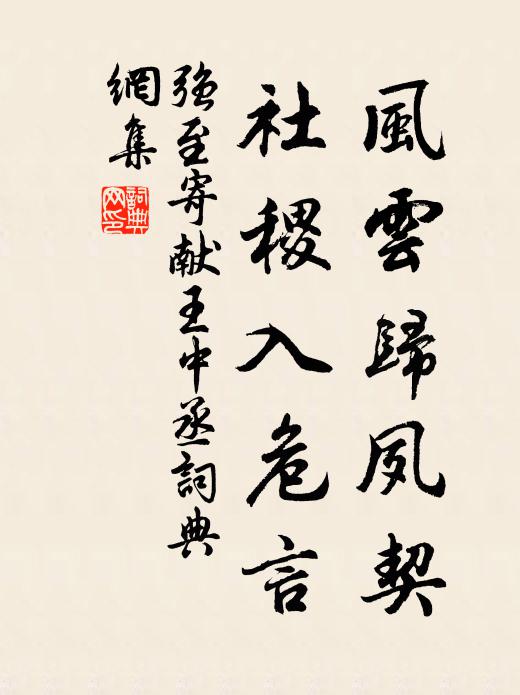 風雲歸夙契
社稷入危言
強至寄献王中丞詞典
網集
詞典網印